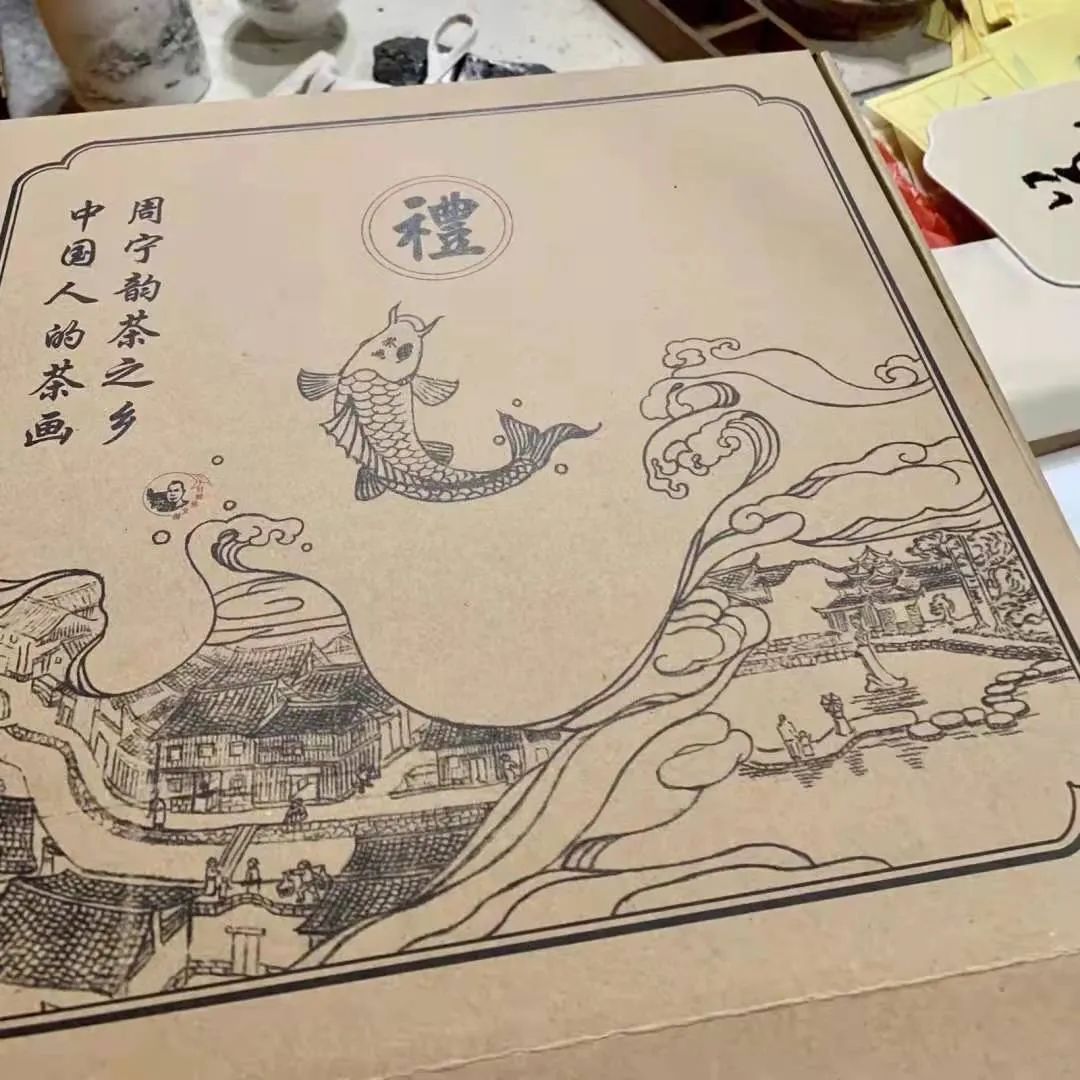 禮
周宁韵茶之乡
中国人的茶画